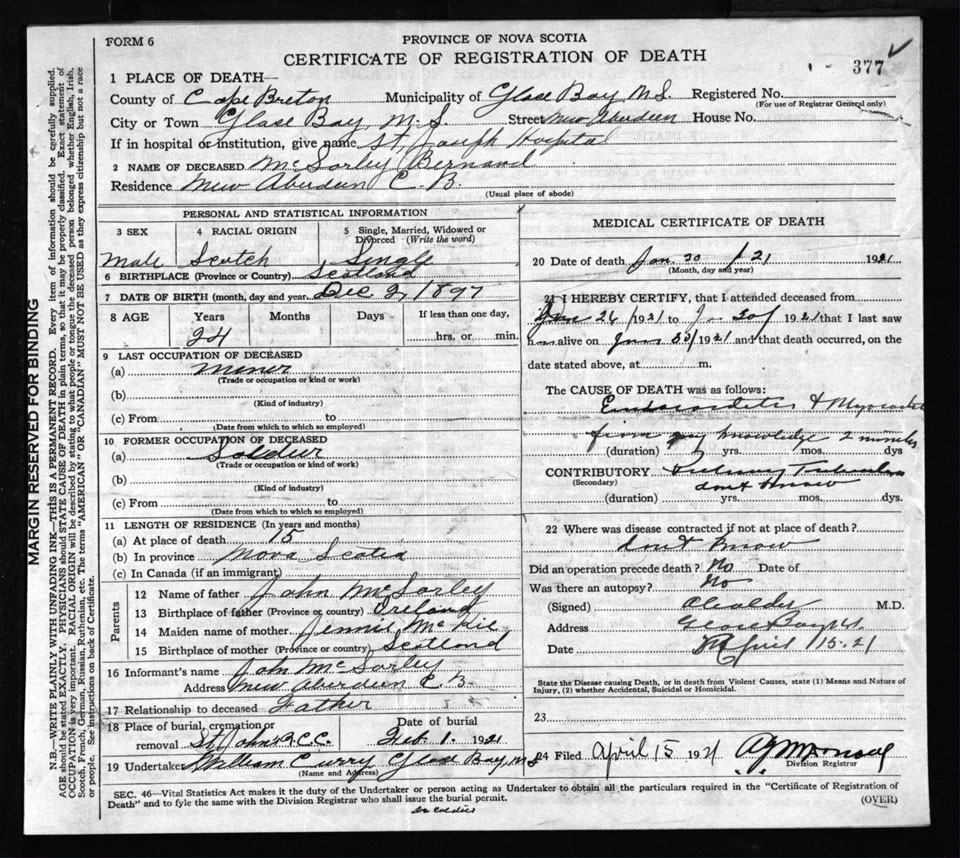 FORM 6
PROVINCE OF NOVA SCOTIA
CERTIFICATE OF REGISTRATION OF DEATH
377
1 PLACE OF DEATH—
County of Cape Breton Municipality of Glace Bay N.S. Registered No.
(For use of Registrar General only)
City or Town Glace Bay, N.S. Street New Aberdeen House No.
If in hospital or institution, give name St. Joseph Hospital
2 NAME OF DECEASED McSorley Bernard
Residence New Aberdeen C.B.
(Usual place of abode)
PERSONAL AND STATISTICAL INFORMATION
3 SEX 4 RACIAL ORIGIN 5 Single, Married, Widowed or Divorced (Write the word)
Male Scotch Single
6 BIRTHPLACE (Province or Country) Scotland
7 DATE OF BIRTH (month, day and year) Dec 2, 1897
8 AGE Years Months Days If less than one day,
24 hrs. or min.
9 LAST OCCUPATION OF DECEASED
(a) Miner
(Trade or occupation or kind or work)
(b)
(Kind of industry)
(c) From to
(Date from which to which so employed)
10 FORMER OCCUPATION OF DECEASED
(a) Soldier
(Trade or occupation or kind of work)
(b)
(Kind of industry)
(c) From to
(Date from which to which so employed)
11 LENGTH OF RESIDENCE (In years and months)
(a) At place of death 15
(b) In province Nova Scotia
(c) In Canada (if an immigrant)
Parents
12 Name of father John McSorley
13 Birthplace of father (Province or country) Ireland
14 Maiden name of mother Jennie McKie
15 Birthplace of mother (Province or country) Scotland
16 Informant's name John McSorley
Address New Aberdeen C.B.
17 Relationship to deceased Father
18 Place of burial, cremation or removal St. Johns R.C.C. Date of burial Feb 1. 1921
19 Undertaker William Curry Glace Bay, N.S.
(Name and Address)
MEDICAL CERTIFICATE OF DEATH
20 Date of death Jan 30 21 1921
(Month, day and year)
21 I HEREBY CERTIFY, that I attended deceased from
Jan 26 1921 to Jan 30 1921 that I last saw
him alive on 1921 and that death occurred, on the
date stated above, at m.
The CAUSE OF DEATH was as follows:
Endocarditis & Myocarditis
from my knowledge 2 months
(duration) yrs. mos. dys
CONTRIBUTORY
(Secondary) dont know
(duration) yrs. mos. dys.
22 Where was disease contracted if not at place of death?
dont know
Did an operation precede death? No Date of
Was there an autopsy? No
(Signed) M.D.
Address Glace Bay N.S.
Date April 15. 21
State the Disease causing Death, or in death from Violent Causes, state (1) Means and Nature of
Injury, (2) whether Accidental, Suicidal or Homicidal.
23
24 Filed April 15 1921
Division Registrar
SEC. 46—Vital Statistics Act makes it the duty of the Undertaker or person acting as Undertaker to obtain all the particulars required in the "Certificate of Registration of
Death" and to fyle the same with the Division Registrar who shall issue the burial permit.
(OVER)
MARGIN RESERVED FOR BINDING
N.B.—WRITE PLAINLY WITH UNFADING INK—THIS IS A PERMANENT RECORD. Every item of information should be carefully supplied.
AGE should be stated EXACTLY. PHYSICIANS should STATE CAUSE OF DEATH in plain terms, so that it may be properly classified. Exact statement of
OCCUPATION is very important. RACIAL ORIGIN will be described by stating to what people or tongue the deceased person belonged, whether English, Irish,
Scotch, French, German, Russian, Ruthenian, etc. The terms "AMERICAN" OR "CANADIAN" MUST NOT BE USED as they express citizenship but not a race
or people. See instructions on back of Certificate.